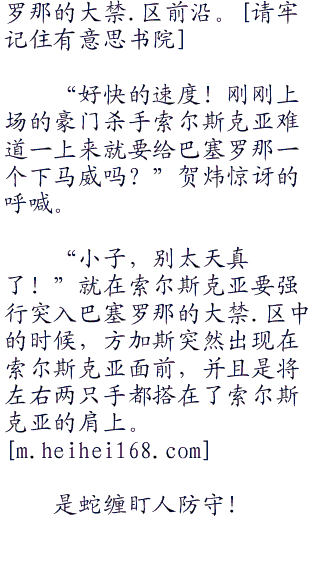 罗那的大禁.区前沿。[请牢
记住有意思书院]
“好快的速度！刚刚上
场的豪门杀手索尔斯克亚难
道一上来就要给巴塞罗那一
个下马威吗？”贺炜惊讶的
呼喊。
“小子，别太天真
了！”就在索尔斯克亚要强
行突入巴塞罗那的大禁.区中
的时候，方加斯突然出现在
索尔斯克亚面前，并且是将
左右两只手都搭在了索尔斯
克亚的肩上。
[m.heihei168.com]
是蛇缠盯人防守！